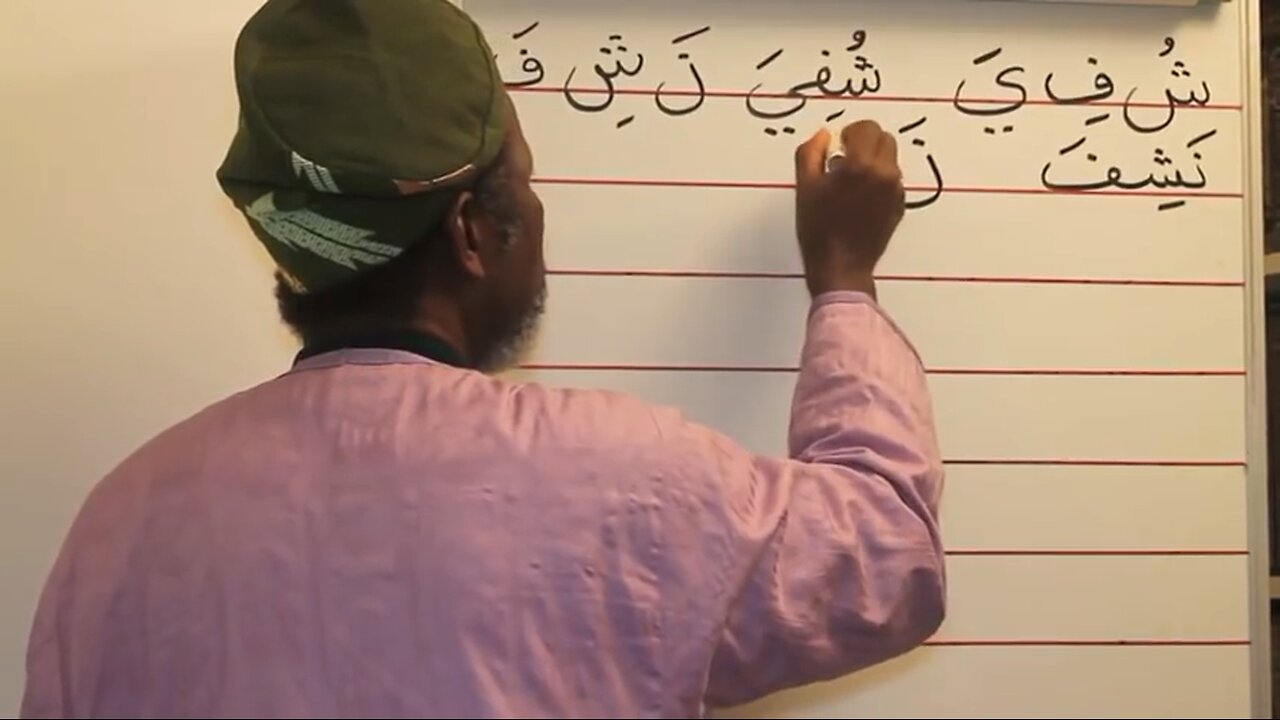 شُ فِ يَ شُفِيَ نَ شِ فَ
نَشِفَ نَ